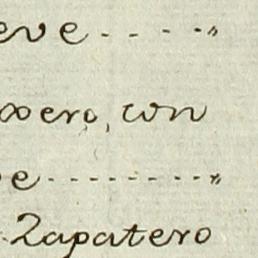 eve - - - - "
oxero, con
e - - - - - - - - "
Zapatero